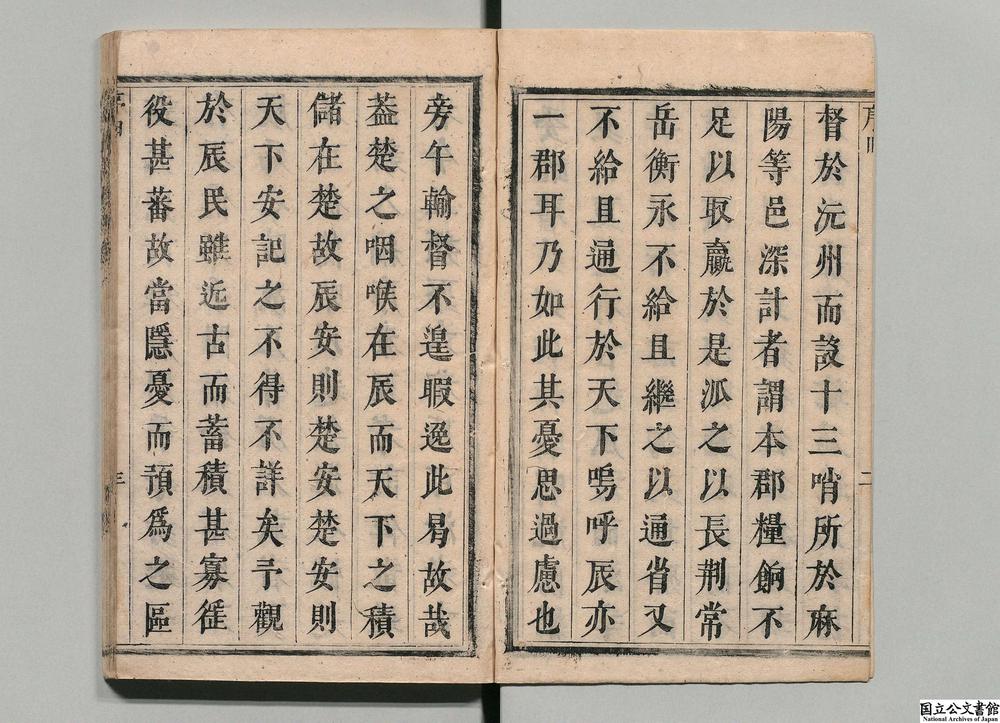 督於沅州而設十三哨所於麻
陽等邑深計者謂本郡糧餉不
足以取贏於是泒之以長荆常
岳衡永不給且繼之以通省又
不給且通行於天下嗚呼辰亦
一郡耳乃如此其憂思過慮也
旁午輸督不遑暇逸此曷故哉
葢楚之咽喉在辰而天下之積
儲在楚故辰安則楚安楚安則
天下安記之不得不詳矣予觀
於辰民雖近古而蓄積甚寡徭
役甚蕃故當隱憂而預爲之區
二
三
国立公文書館
National Archives of Japan